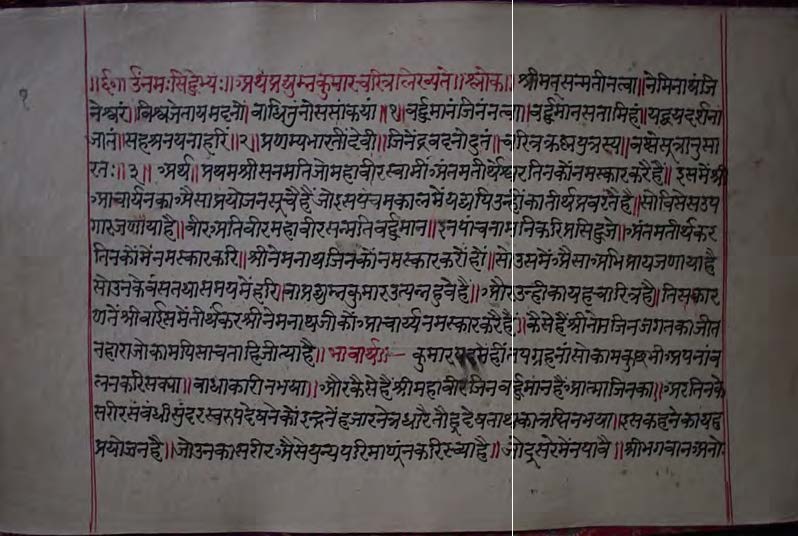 १
॥६०॥ उंनमःसिद्धेभ्यः॥ अथप्रद्युम्नकुमारचरित्रलिख्यते॥श्लोक॥ श्रीमतसन्मतीनत्वा॥नेमिनाथंजि
नेश्वरं॥विश्वजेतायमदनो॥बाधितुंनोससांकथा॥१॥वर्द्धमानंजिनंनत्वा॥वर्द्धमांनसतामिहं॥यद्रूपदर्शना
जातं॥सहश्रनयनाहरिं॥२॥प्रणम्यभारतींदेवी॥जिनेंद्रवदनोद्गतं॥चरित्रंकृष्णपुत्रस्य॥वक्षेसूत्रानुसा
रतः॥३॥ अर्थ॥ प्रथमश्रीसनमतिजोमहावीरस्वामीं अंनमतीर्थेश्वरतिनकोंनमस्कारकरैहैं॥ इसमेंश्री
आचार्यनका अैसाप्रयोजनसूचैहैंजोइसपंचमकालमेंयद्यपिउन्हींकातीर्थप्रवरतैहै॥सोविसेसउप
गारजणायाहै॥वीर अतिवीरमहावीरसन्मतिवर्द्धमान॥इनपांचनामनिकरिप्रसिद्धजे॥ अंनमतीर्थकर
तिनकोंमेंनमस्कारकरि॥श्रीनेमनाथजिनकोंनमस्कारकरोंहों॥सोउसमें अैसा अभिप्रायजणायाहै
सोउनकेवंसतथासमयमेंहरि।वाप्रद्युम्नकुमारउत्पन्नहुवेहैं॥ओरउन्हीकायहचारित्रहै॥तिसकार
णतेंश्रीबाईसमेंतीर्थकरश्रीनेमनाथजीकों आचार्य्यनमस्कारकरैहैं॥कैसेहैंश्रीनेमजिनजगतकाजीत
नहाराजोकामपिसाचताहिजीत्याहै॥ भावार्थः- कुमारपदमेंहींतपग्रहनांसोकामकुछभी अपनांव
लनकरिसक्या॥वाधाकारीनभया॥ औरकैसेहैंश्रीमहावीरजिनवर्द्धमानहै आत्माजिनका॥ अरतिनके
सरीरसंबंधीसुंदरस्वरूपदेषनेकोंइन्द्रनेंहजारनेत्रधारैतौहूदेषताथकात्रप्तिनभया॥इसकहनेकायह
प्रयोजनहै॥जोउनकासरीर अैसेपुन्यपरिमाणूंनकरिरच्याहै॥जोदूसरेमेंनपावै॥श्रीभगवान अनो